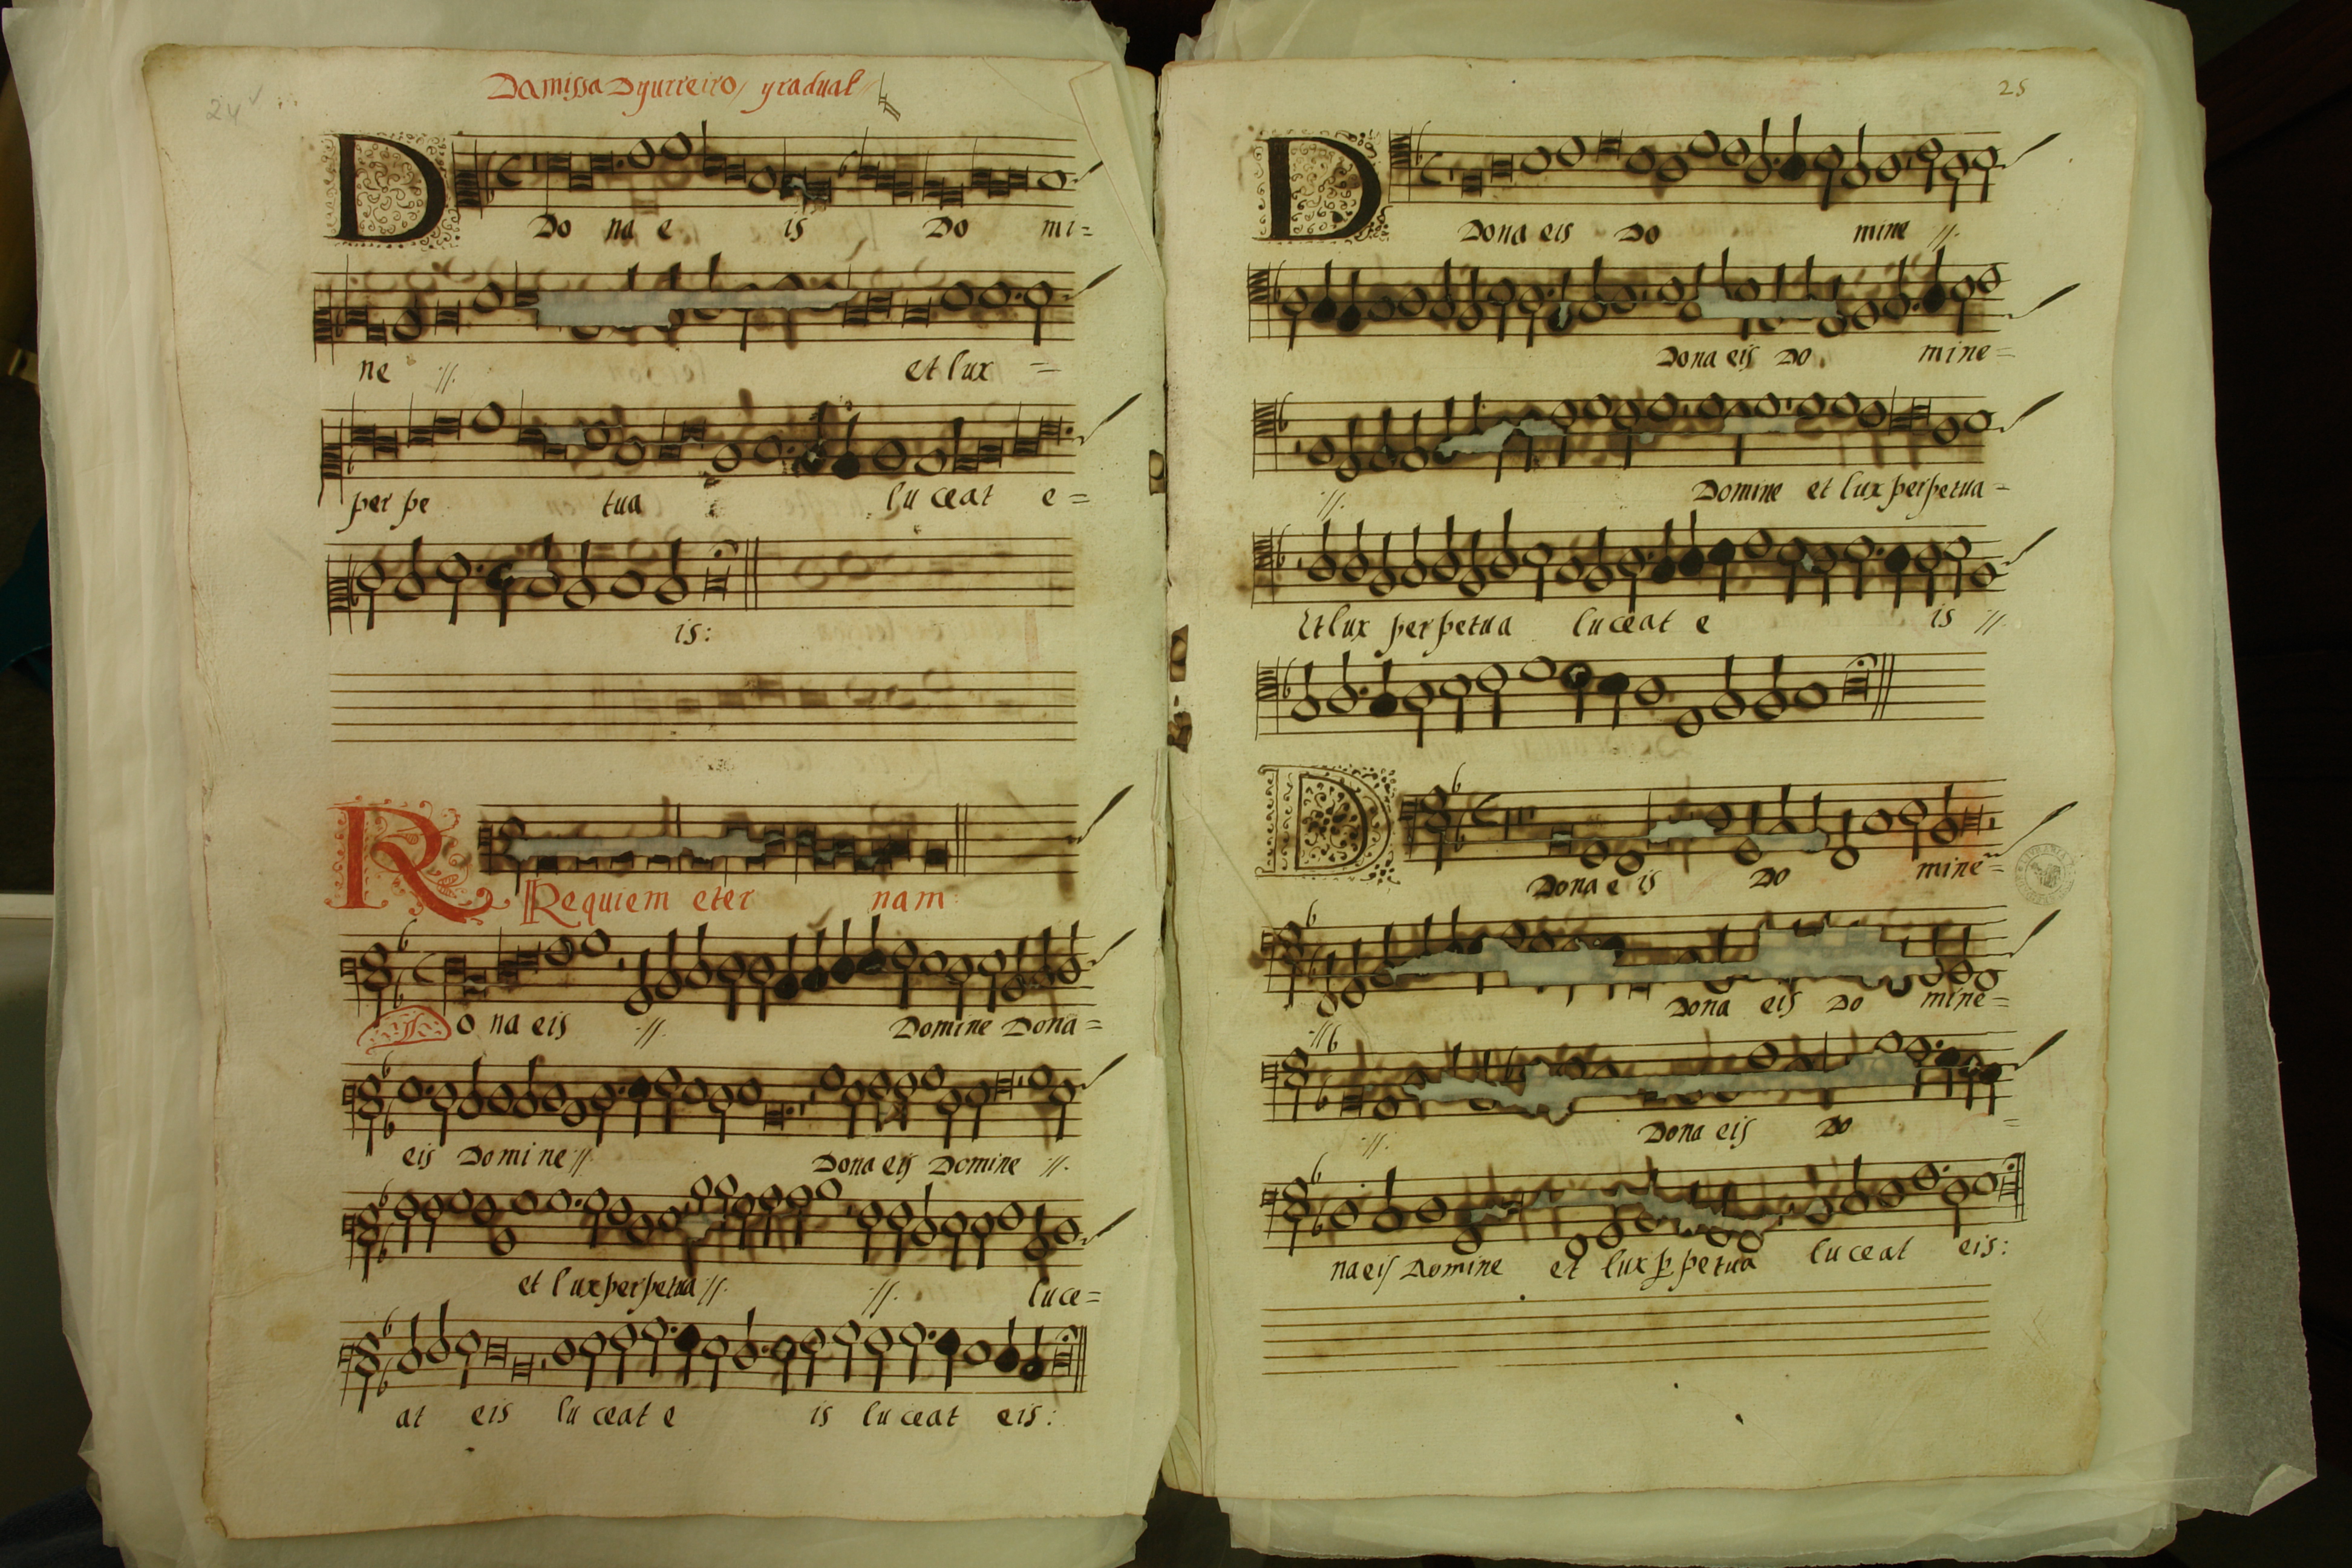 24v
Da missa Dgurreiro / gradual
D
Do na e is Do mi=
ne :||: et lux =
per pe tua lu ceat e=
is:
R Requiem eter nam
o na eis :||: Domine Dona=
eis Domine :||: Dona eis Domine :||:
et lux perpetua :||: :||: luce=
at eis lu ceat e is lu ceat eis:
25
D
Dona eis Do mine :||:
Dona eis Do mine=
:||: Domine et lux perpetua=
Et lux perpetua luceat e is :||:
D
Dona e is Do mine=
Dona eis Do mine=
:||: Dona eis Do =
na eis Domine et lux p petua lu ceat eis: